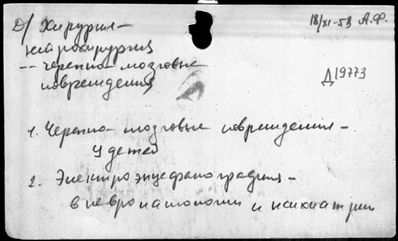 Д/ Хирургия –
18/XI-59 А.Ф.
нейрохирургия
-- черепно-мозговые
повреждения
Д19773
1. Черепно-мозговые повреждения –
у детей
2. Электроэнцефалография –
в невропатологии и психиатрии